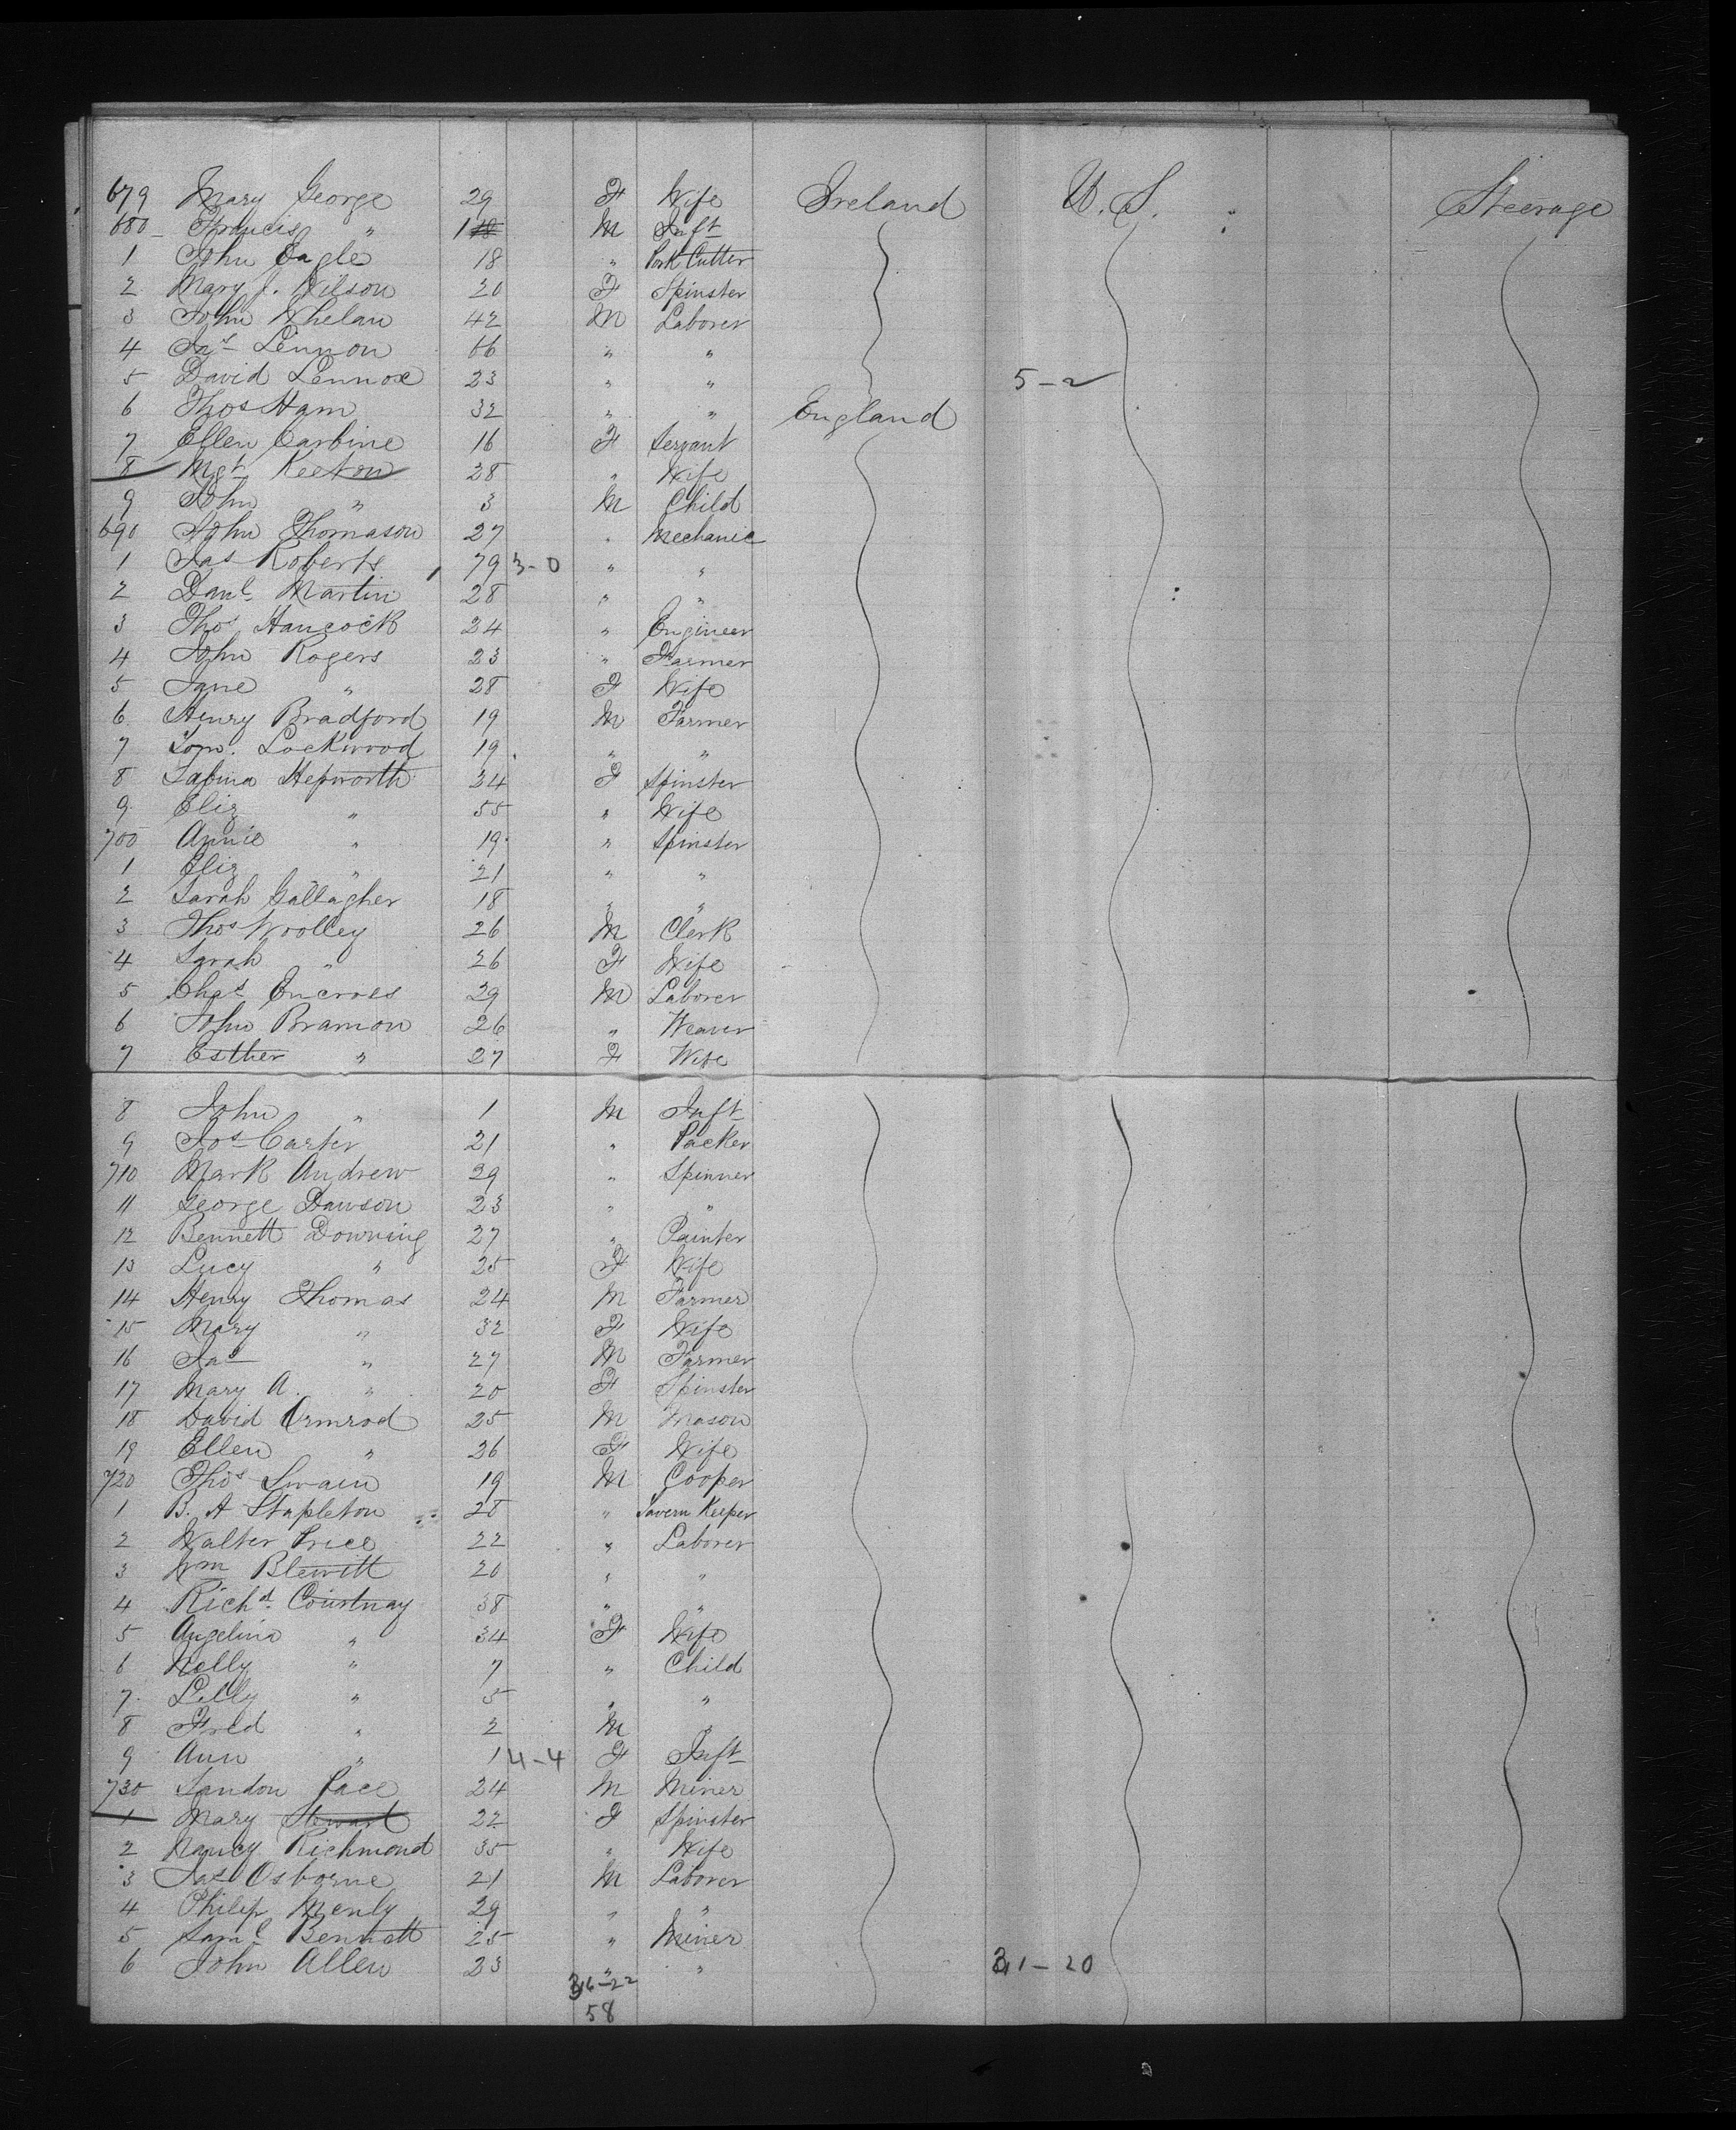 679 Mary George 29 F Wife Ireland U.S. Steerage
680 Francis " 1 M Inft
1 John Eagle 18 " Pork Cutter
2 Mary J. Wilson 20 F Spinster
3 John Whelan 42 M Laborer
4 Jas Lennon 66 " "
5 David Lennox 23 " " 5-2
6 Thos Ham 32 " " England
7 Ellen Carbine 16 F Servant
8 Mgt Keeton 28 " Wife
9 John " 3 M Child
690 John Thomason 27 " Mechanic
1 Jas Roberts 79 3-0 " "
2 Danl Martin 28 " "
3 Thos Hancock 24 " Engineer
4 John Rogers 23 " Farmer
5 Jane " 28 F Wife
6 Henry Bradford 19 M Farmer
7 Tom. Lockwood 19 " "
8 Sabina Hepworth 24 F Spinster
9 Eliz " 55 " Wife
700 Annie " 19 " Spinster
1 Eliz " 21 " "
2 Sarah Gallagher 18 " "
3 Thos Woolley 26 M Clerk
4 Sarah " 26 F Wife
5 Chas 29 M Laborer
6 John Bramon 26 " Weaver
7 Esther " 27 F Wife
8 John " 1 M Inft
9 Jos Carter 21 " Packer
710 Mark Andrew 29 " Spinner
11 George Dawson 23 " "
12 Bennett Downing 27 " Painter
13 Lucy " 25 F Wife
14 Henry Thomas 24 M Farmer
15 Mary " 32 F Wife
16 Jas " 27 M Farmer
17 Mary A. " 20 F Spinster
18 David Ormrod 25 M Mason
19 Ellen " 26 F Wife
720 Thos Swain 19 M Cooper
1 B. A Stapleton 28 " Tavern Keeper
2 Walter Price 22 " Laborer
3 Wm Blewitt 20 " "
4 Richd Courtnay 38 " "
5 Angelina " 34 F Wife
6 Nelly " 7 " Child
7 Lilly " 5 " "
8 Fred " 2 M "
9 Ann " 1 4-4 F Inft
730 Landon Pace 24 M Miner
1 Mary Stewart 22 F Spinster
2 Nancy Richmond 35 " Wife
3 Jas Osborne 21 M Laborer
4 Philip Menly 29 " "
5 Saml Bennett 25 " Miner
6 John Allen 23 " " 31-20
36-22
58